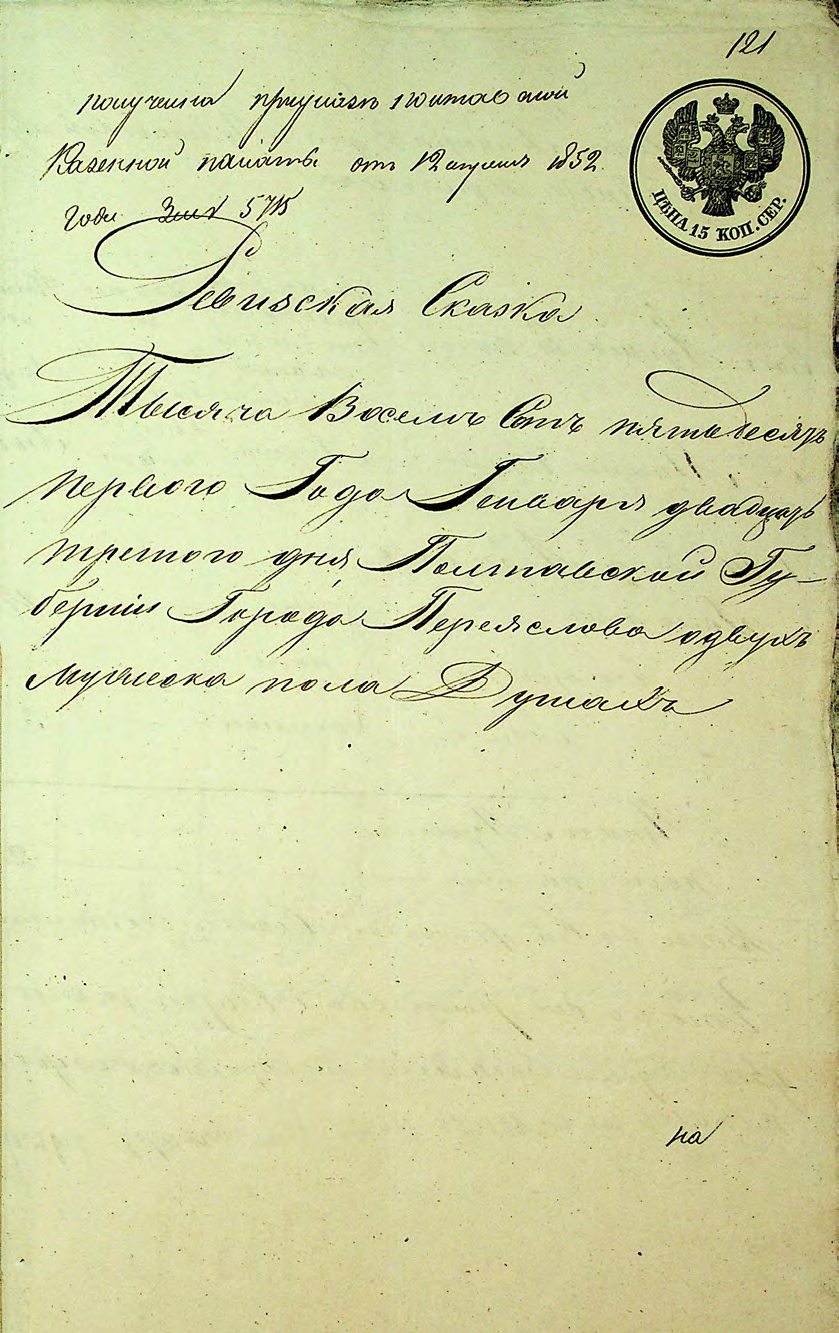 121
получена при указе полтавской
Казенной палаты от 12 апреля 1852
года № 5715
ЦѢНА 15 КОП. СЕР.
Ревизская Сказка
Тысяча Восемь Сотъ пятьдесятъ
первого Года Генваря двадцать
третого дня Полтавской Гу-
бернии Города Переяслова одвухъ
мужеска пола Душахъ
на